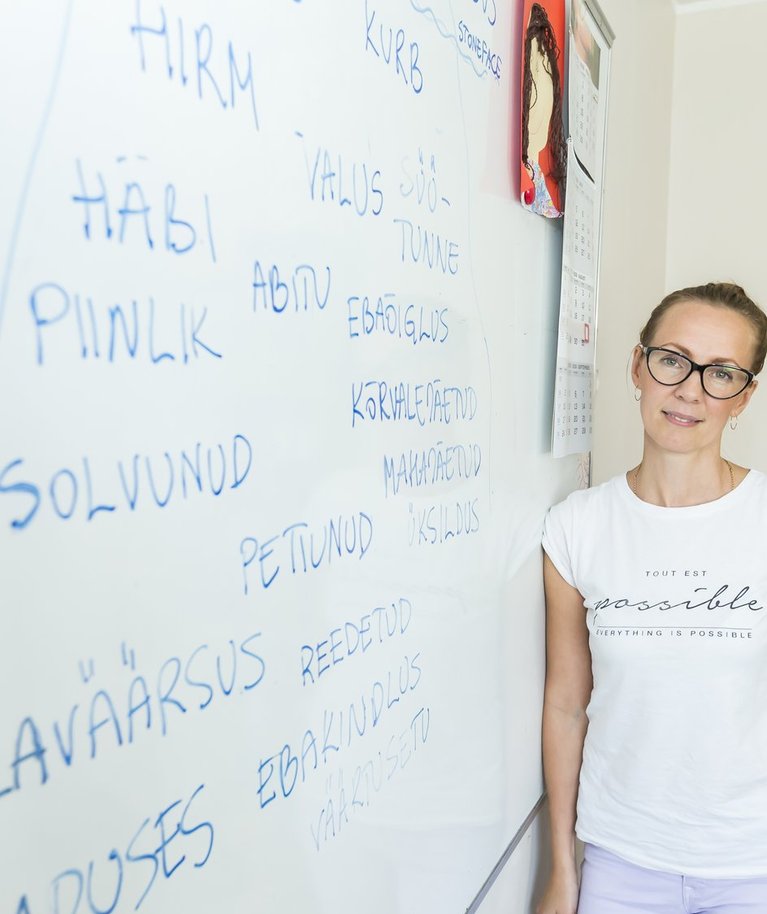 HIRM
KURB
STONEFACE
HÄBI
VALUS
SÜÜ-
TUNNE
ABITU
PIINLIK
EBAÕIGLUS
KÕRVALEPÄETUD
SOLVUNUD
MAHAPÄETUD
ÜKSILDUS
PETIUNUD
REEDETUD
AVÄÄRSUS
EBAKINDLUS
VÄÄRTUSETU
ADUSES
TOUT EST
possible
EVERYTHING IS POSSIBLE